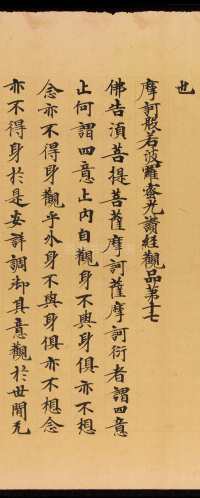 也
摩訶般若波羅蜜光讚經觀品第十七
佛告須菩提菩薩摩訶薩摩訶衍者謂四意
止何謂四意止內自觀身不與身俱亦不想
念亦不得身觀乎外身不與身俱亦不想念
亦不得身於是安詳調御其意觀於世間无